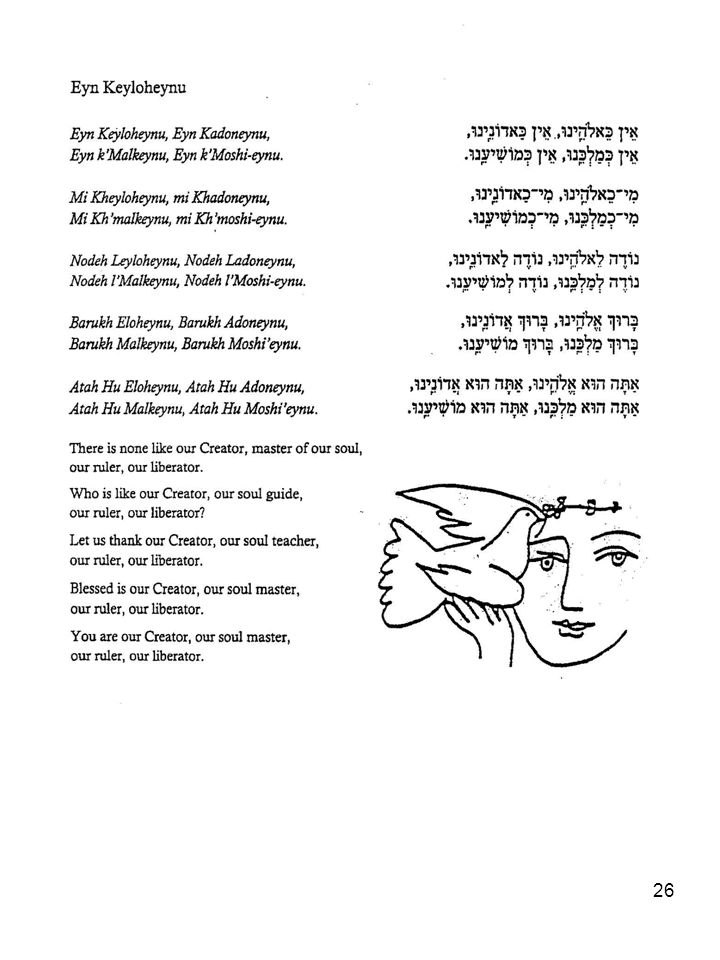 Eyn Keyloheynu
Eyn Keyloheynu, Eyn Kadoneynu,
Eyn k'Malkeynu, Eyn k'Moshi-eynu.
Mi Kheyloheynu, mi Khadoneynu,
Mi Kh'malkeynu, mi Kh'moshi-eynu.
Nodeh Leyloheynu, Nodeh Ladoneynu,
Nodeh l'Malkeynu, Nodeh l'Moshi-eynu.
Barukh Eloheynu, Barukh Adoneynu,
Barukh Malkeynu, Barukh Moshi'eynu.
Atah Hu Eloheynu, Atah Hu Adoneynu,
Atah Hu Malkeynu, Atah Hu Moshi'eynu.
אֵין כֵּאלֹהֵֽינוּ, אֵין כַּאדוֹנֵֽינוּ,
אֵין כְּמַלְכֵּֽנוּ, אֵין כְּמוֹשִׁיעֵֽנוּ.
מִי־כֵאלֹהֵֽינוּ, מִי־כַאדוֹנֵֽינוּ,
מִי־כְמַלְכֵּֽנוּ, מִי־כְמוֹשִׁיעֵֽנוּ.
נוֹדֶה לֵאלֹהֵֽינוּ, נוֹדֶה לַאדוֹנֵֽינוּ,
נוֹדֶה לְמַלְכֵּֽנוּ, נוֹדֶה לְמוֹשִׁיעֵֽנוּ.
בָּרוּךְ אֱלֹהֵֽינוּ, בָּרוּךְ אֲדוֹנֵֽינוּ,
בָּרוּךְ מַלְכֵּֽנוּ, בָּרוּךְ מוֹשִׁיעֵֽנוּ.
אַתָּה הוּא אֱלֹהֵֽינוּ, אַתָּה הוּא אֲדוֹנֵֽינוּ,
אַתָּה הוּא מַלְכֵּֽנוּ, אַתָּה הוּא מוֹשִׁיעֵֽנוּ.
There is none like our Creator, master of our soul,
our ruler, our liberator.
Who is like our Creator, our soul guide,
our ruler, our liberator?
Let us thank our Creator, our soul teacher,
our ruler, our liberator.
Blessed is our Creator, our soul master,
our ruler, our liberator.
You are our Creator, our soul master,
our ruler, our liberator.
26